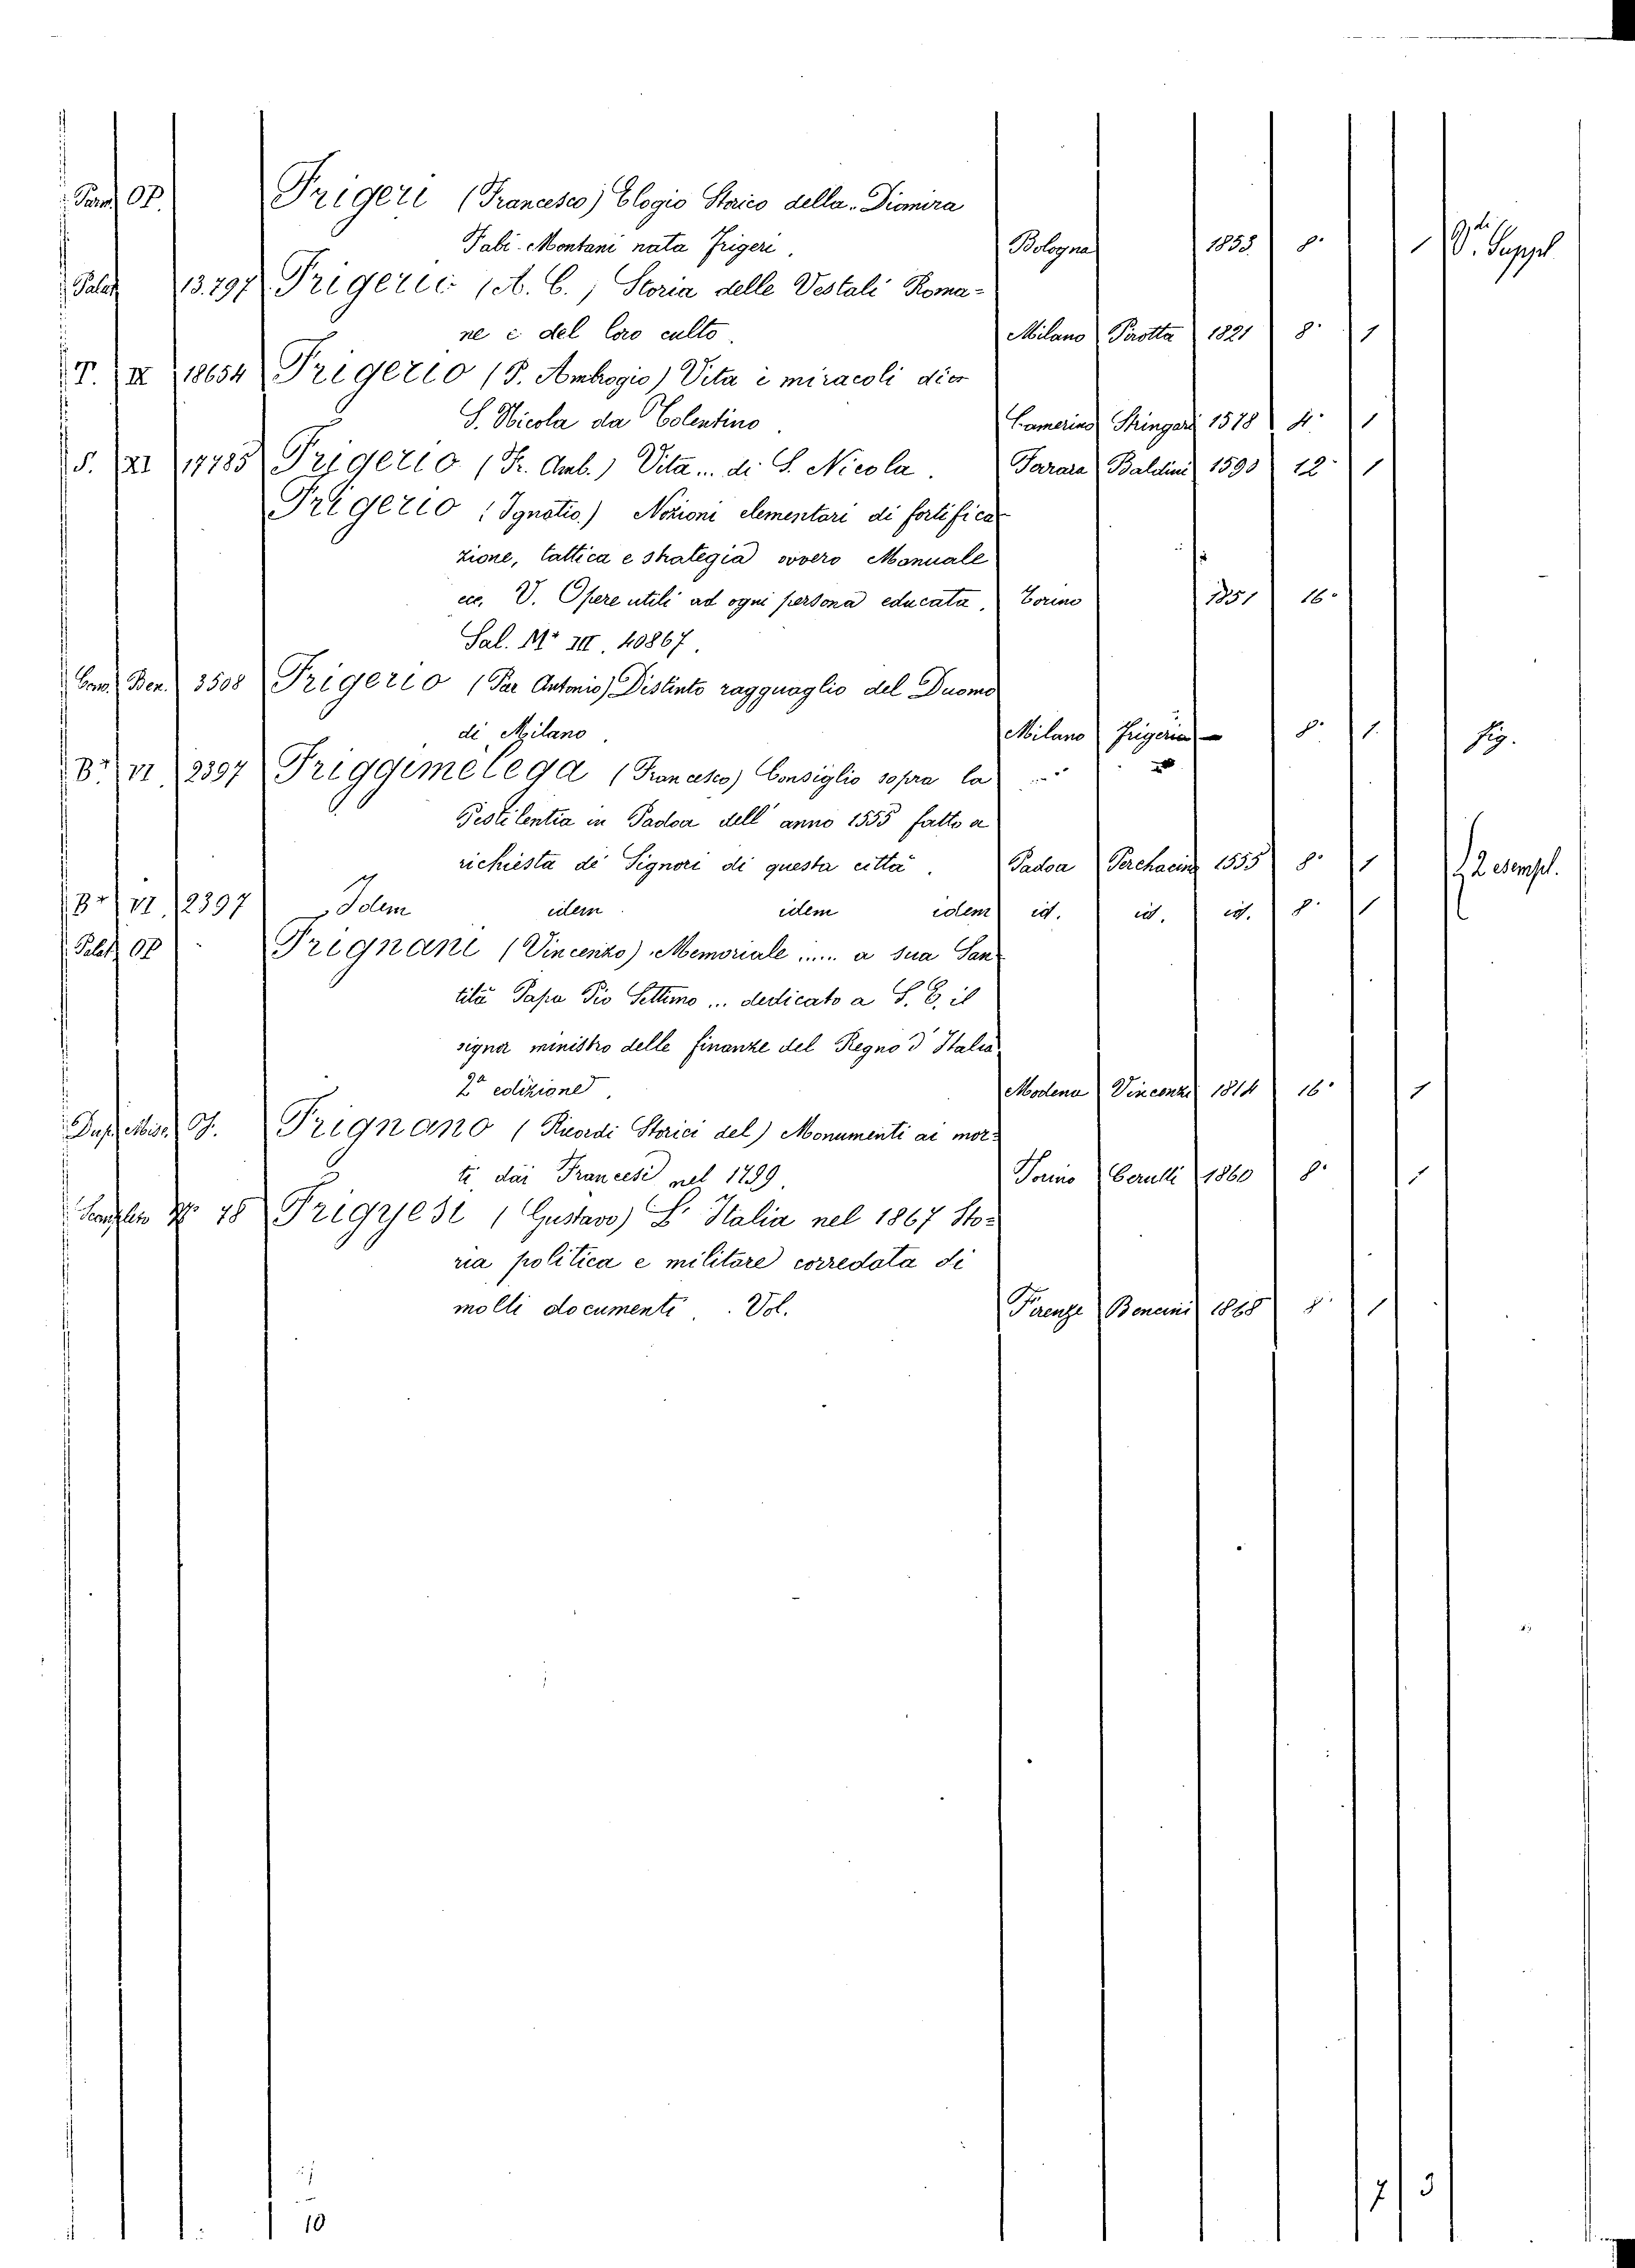 Parm. OP. Frigeri (Francesco) Elogio Storico della Diomira
Fabi-Montani nata Frigeri. Bologna 1853 8° 1 V. Suppl
Palat 13.797 Frigerio (A. C.) Storia delle Vestali Roma-
ne e del loro culto. Milano Pirotta 1821 8° 1
T. IX 18654 Frigerio (P. Ambrogio) Vita e miracoli di
S. Nicola da Tolentino. Camerino Stringari 1578 4° 1
S. XI 17785 Frigerio (Fr. Amb.) Vita ... di S. Nicola. Ferrara Baldini 1590 12° 1
Frigerio (Ignatio) Nozioni elementari di fortifica-
zione, tattica e strategia ovvero Manuale
ecc. V. Opere utili ad ogni persona educata. Torino 1851 16°
Sal. Mr III. 40867.
Com. Ben. 3508 Frigerio (Par Antonio) Distinto ragguaglio del Duomo
di Milano. Milano Frigerio — 8° 1. fig.
Br. VI. 2397 Friggimelega (Francesco) Consiglio sopra la
Pestilentia in Padoa dell' anno 1555 fatto a
richiesta de' Signori di questa città. Padoa Perchacino 1555 8° 1 2 esempl.
Br. VI. 2397 Idem idem idem idem id. id. id. 8° 1
Palat. OP Frignani (Vincenzo) Memoriale ..... a sua San-
tità Papa Pio Settimo ... dedicato a S. E. il
signor ministro delle finanze del Regno d' Italia
2ª edizione. Modena Vincenzi 1814 16° 1
Dup. Misc. G. Frignano (Ricordi Storici del) Monumenti ai mor-
ti dai Francesi nel 1799. Torino Cerutti 1860 8° 1
No 48 Frigyesi (Gustavo) L' Italia nel 1867 Sto-
ria politica e militare corredata di
molti documenti. Vol. Firenze Bencini 1868 8° 1
10 7 3